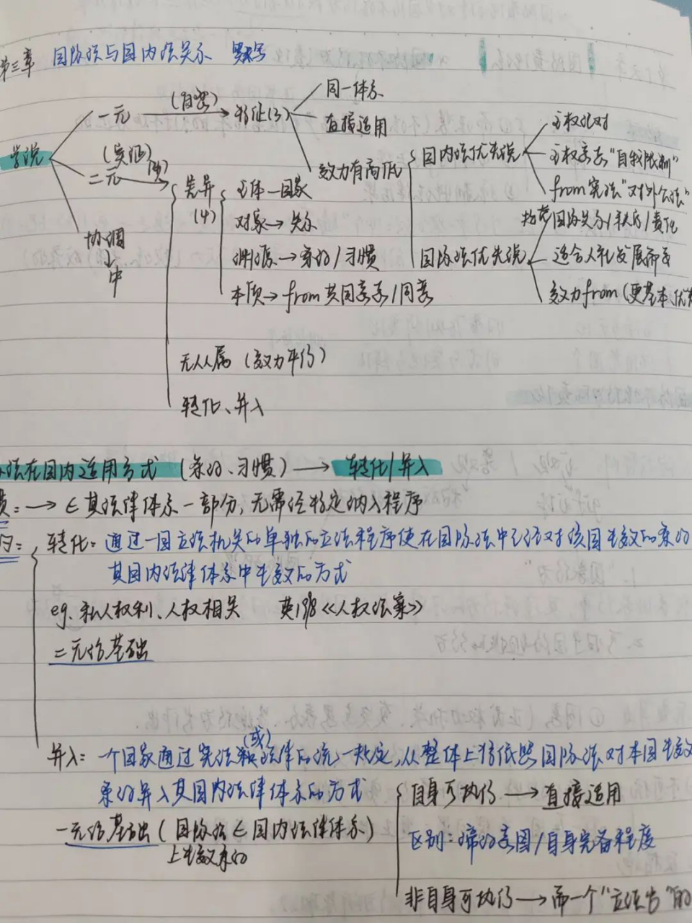 第三章 国际法与国内法关系
学说
一元 (自然) 特征(3) 同一体系
直接适用
效力有高低
国内法优先说 主权绝对
主权意志"自我限制"
from 宪法"对外公法"
国际法优先说 国际关系/秩序/责任
适合人民发展需要
效力from (更基本
二元 (实证) (4)
差异(4) 主体—国家
对象→关系
渊源→条约/习惯
本质→from 共同意志/同意
无从属 (效力平行)
转化、并入
协调
中
法在国内适用方式 (条约、习惯) → 转化/并入
→ ∈ 其法律体系一部分,无需经特定纳入程序
转化:通过一国立法机关的单独的立法程序使在国际法中已经对该国生效的条约
其国内法律体系中生效的方式
eg.私人权利、人权相关 英198《人权法案》
二元论基础
并入:一个国家通过宪法(或)法律的统一规定,从整体上将依照国际法对本国生效
条约并入其国内法律体系的方式
一元论基础(国际法∈国内法律体系)
上生效条约
自身可执行→直接适用
区别:缔约意图/自身完备程度
非自身可执行→需一个"立法者"的